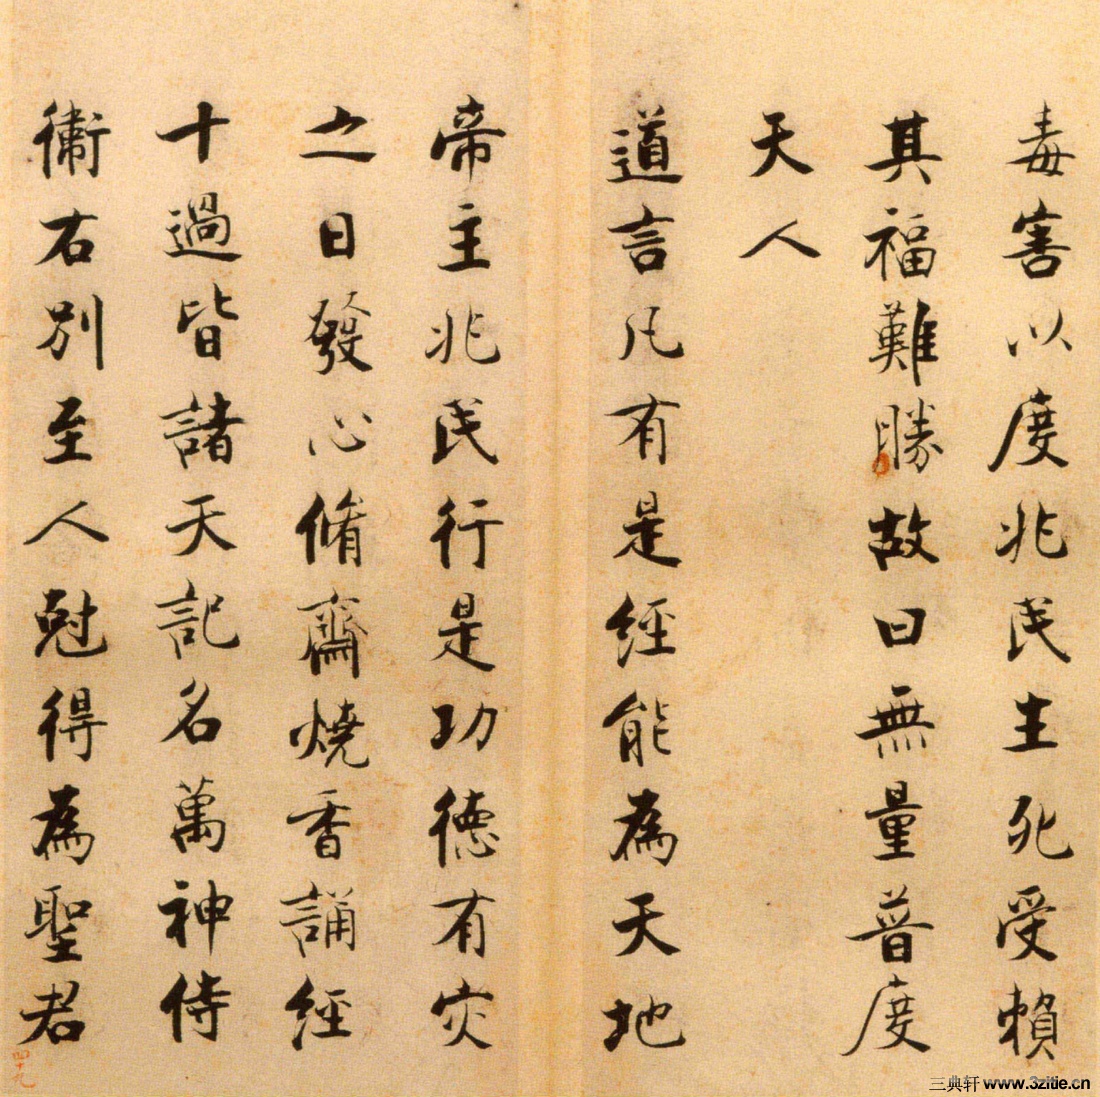 毒害以度兆民生死受賴
其福難勝故曰無量普度
天人
道言凡有是經能為天地
帝主兆民行是功德有灾
之日發心脩齋燒香誦經
十過皆諸天記名萬神侍
衛右別至人尅得為聖君
四十九
三典轩 www.3zitie.cn